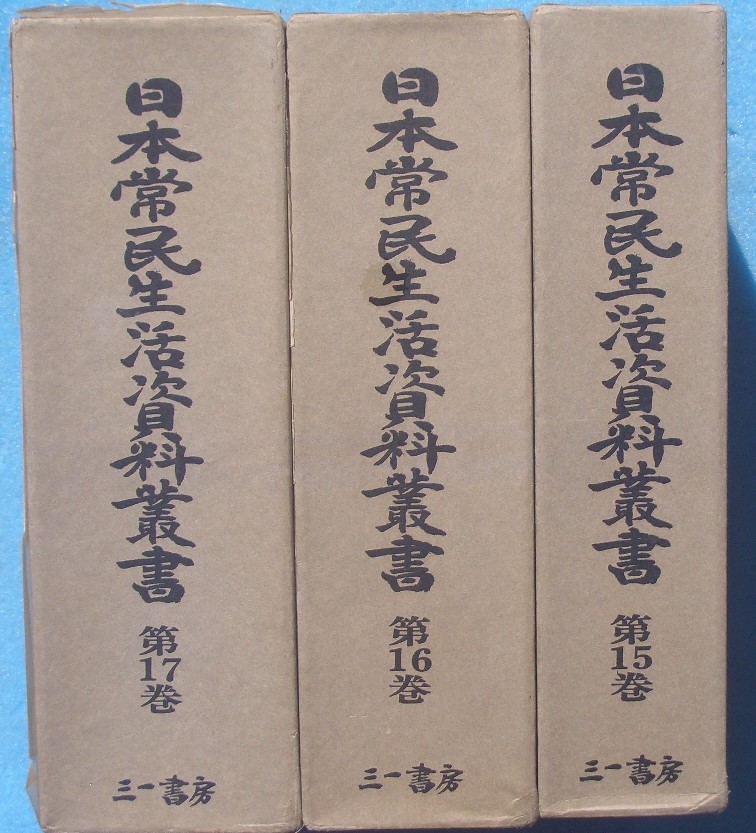 日本常民生活資料叢書
第15巻
三一書房
日本常民生活資料叢書
第16巻
三一書房
日本常民生活資料叢書
第17巻
三一書房